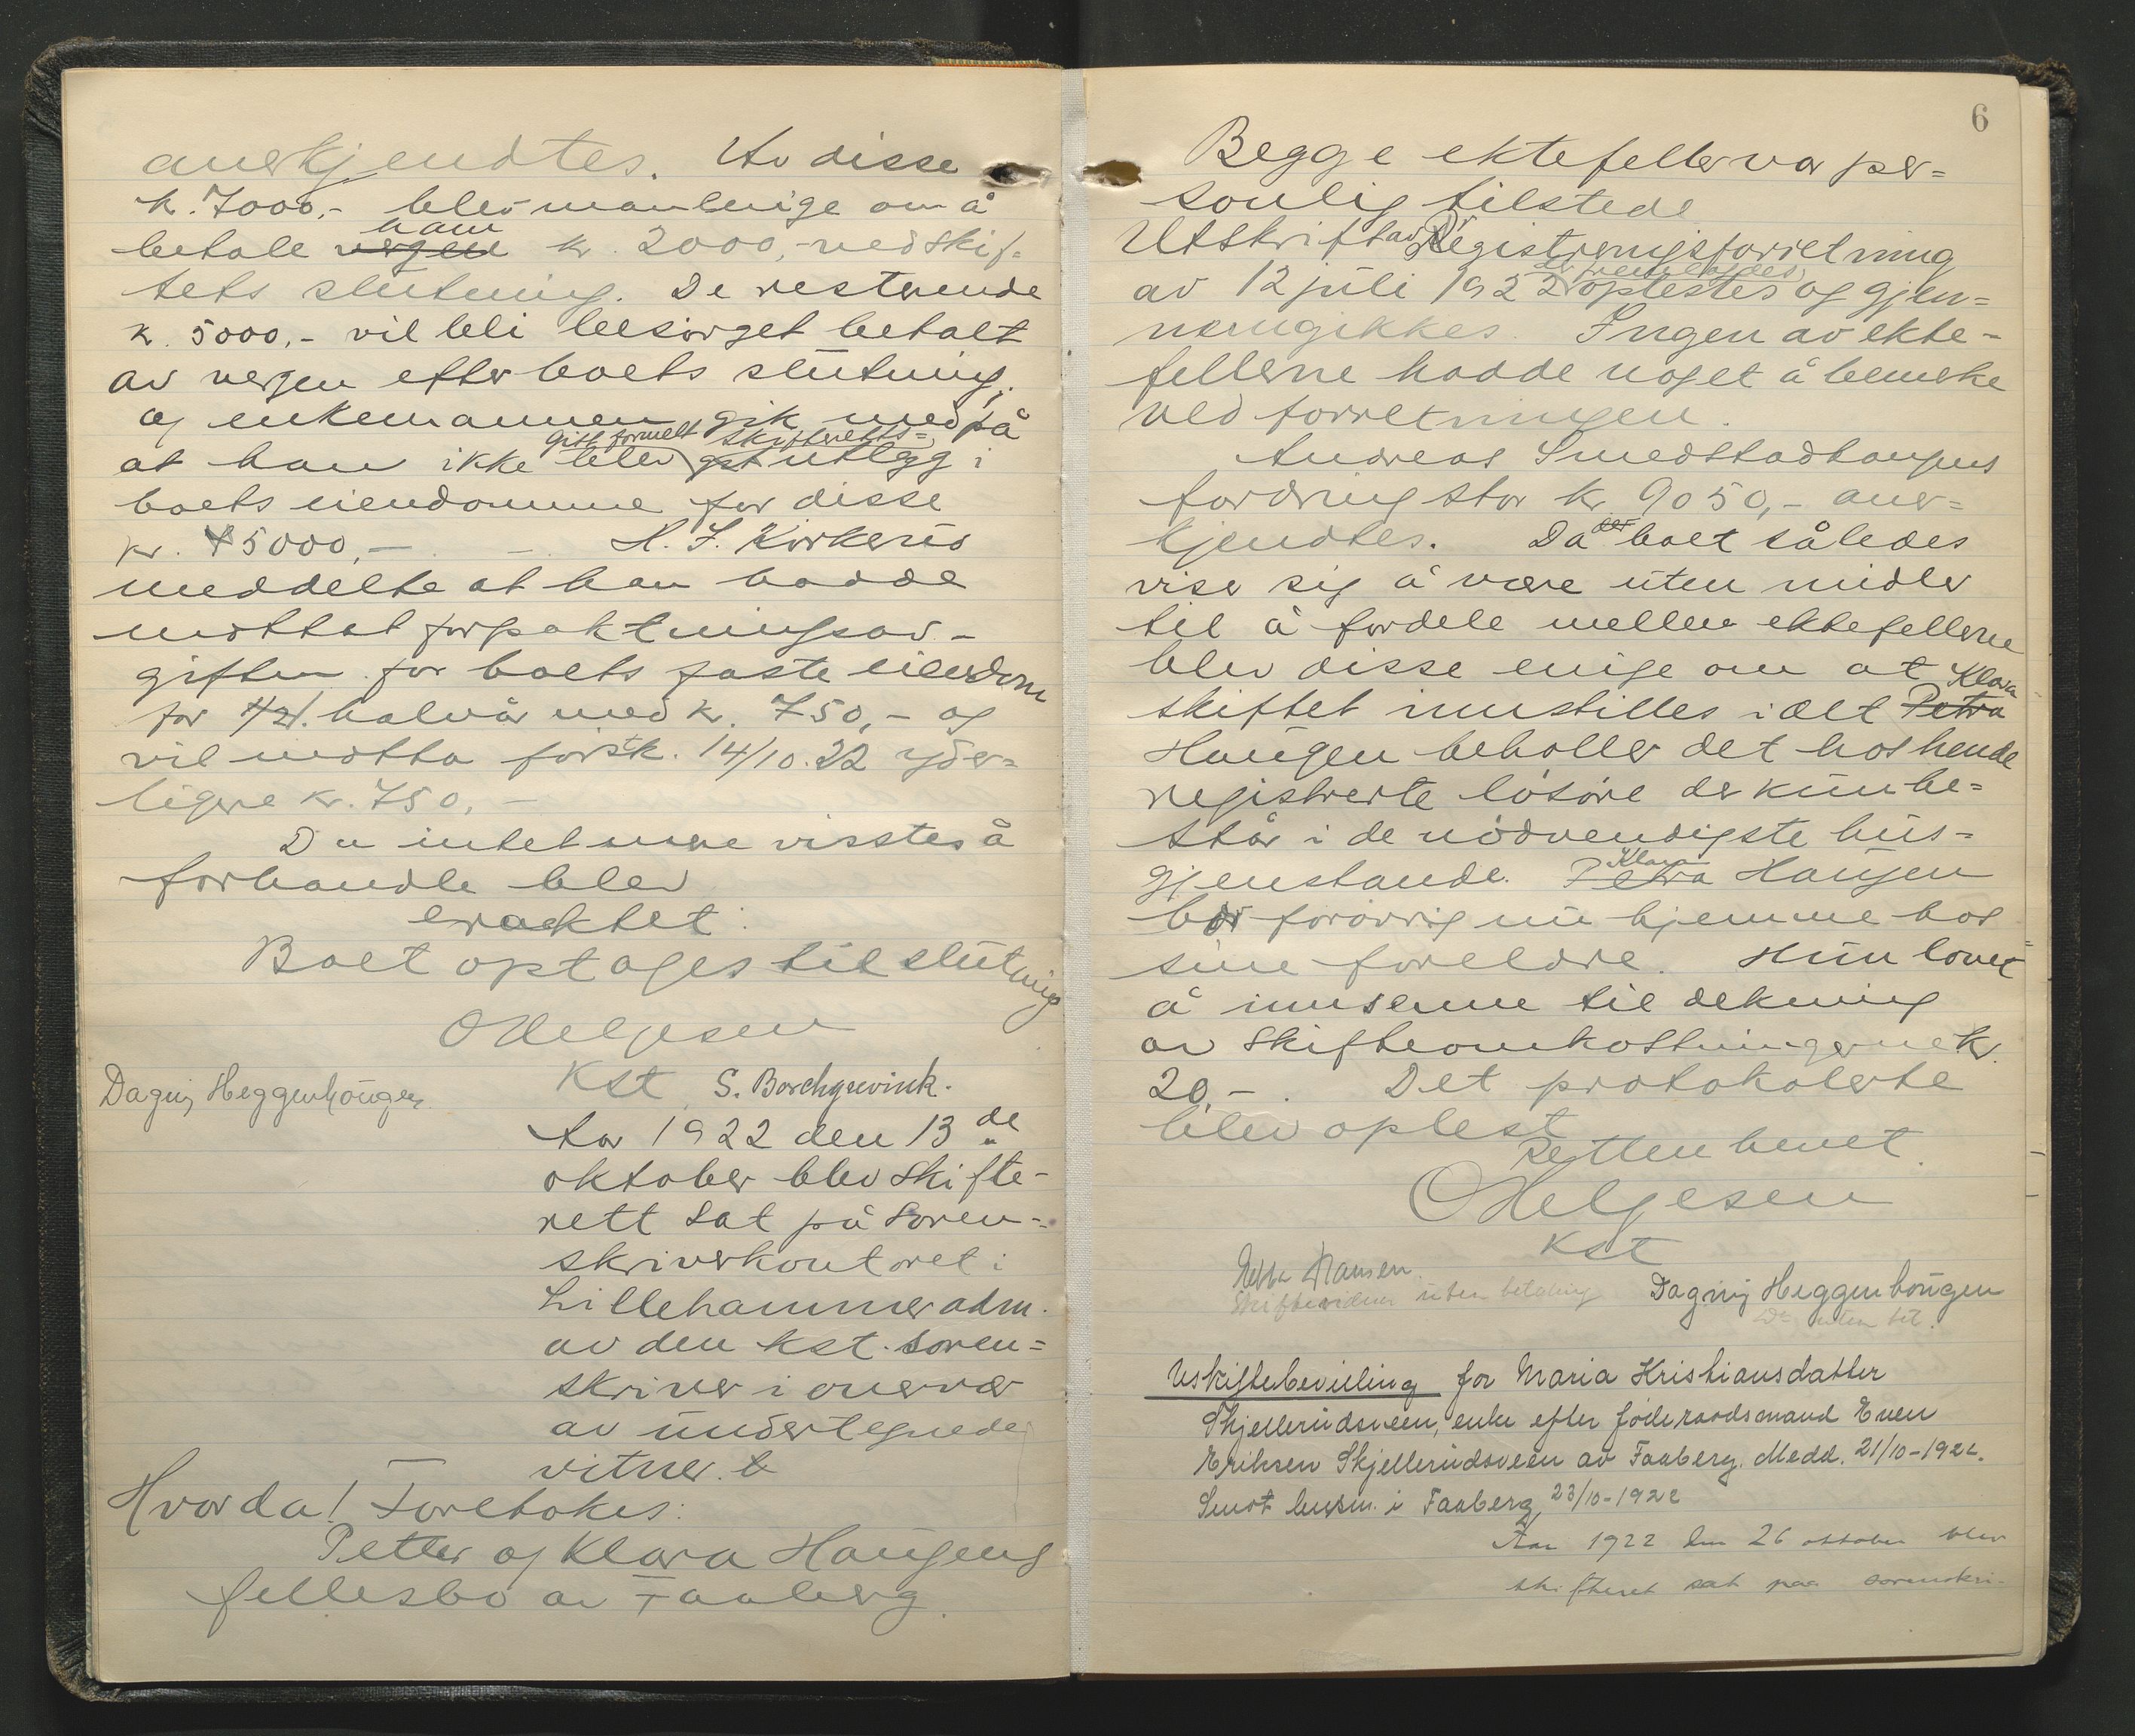 anerkjendtes. Av disse
k. 7000,- blev man enige om å
ham
betale vergen kr. 2000,- ved skif-
tets slutning. De resterende
k. 5000,- vil bli besørget betalt
av vergen efter boets slutning,
og enkemannen gik med på
gitt formelt skifteretts-
at han ikke blev gitt utlegg i
boets eiendomme for disse
kr. 5000,- H. J. Kirkerud
meddelte at han hadde
mottat forpaktningsav-
giften for boets faste eiendom
for 1/2. halvår med k. 750,- og
vil motta förstk. 14/10.22 yder-
ligere k. 750,-
Da intet mere visstes å
forhandle blev
eracktet:
Boet optages til slutning
O Helgesen
Kst
Dagny Heggenhougen S. Borchgrevink.
Aar 1922 den 13de
oktober blev skifte-
rett sat på soren-
skriverkontoret i
Lillehammer adm.
av den kst. soren-
skriver i overvær
av undertegnede
vitner.
Hvorda! Foretokes:
Petter og Klara Haugens
fellesbo av Faaberg.
6
Begge ektefeller var per-
sonlig tilstede
Utskrift av Registreringsforretning
fremlagdes,
av 12 juli 1922 oplestes og gjen-
nemgikkes. Ingen av ekte-
fellerne hadde noget å bemerke
ved forretningen.
Andreas Smedstadhaugens
fordring stor kr. 9050,- aner-
kjendtes. Da boet således
viser sig å være uten midler
til å fordele mellem ektefellerne
blev disse enige om at
Klara
skiftet innstilles idet Petra
Haugen beholler det hos hende
registrerte løsøre der kun be-
står i de nødvendigste hus-
Klara
gjenstande. Petra Haugen
bor forøvrig nu hjemme hos
sine foreldre. Hun lovet
å innsenne til dekning
av skifteomkostningerne kr.
20,-. Det protokolerte
blev oplest
Retten hevet.
O Helgesen
Kst
Hansen
Skiftevidne uten betaling Dagny Heggenhougen
Do uten bet.
Uskiftebevilling for Maria Kristiansdatter
Skjellerudsveen, enke efter föderaadsmand Even
Eriksen Skjellerudsveen av Faaberg. Medd. 21/10-1922.
Sendt lensm. i Faaberg 23/10-1922
Aar 1922 den 26 oktober blev
skifteret sat paa sorenskri-